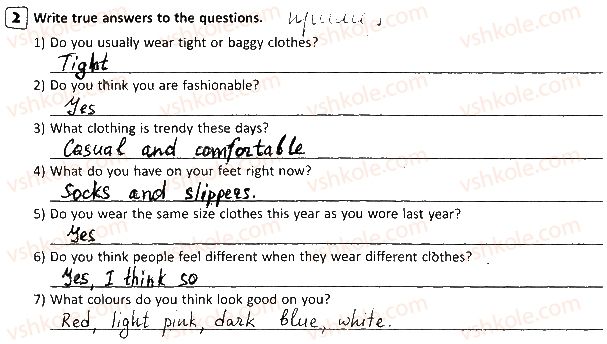 2 Write true answers to the questions.
1) Do you usually wear tight or baggy clothes?
Tight
2) Do you think you are fashionable?
Yes
3) What clothing is trendy these days?
Casual and comfortable
4) What do you have on your feet right now?
Socks and slippers.
5) Do you wear the same size clothes this year as you wore last year?
Yes
6) Do you think people feel different when they wear different clothes?
Yes, I think so
7) What colours do you think look good on you?
Red, light pink, dark blue, white.
vshkole.com